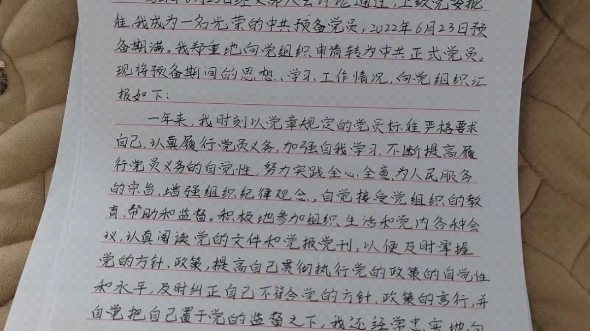 经支部大会讨论通过,上级党委批
准,我成为一名光荣的中共预备党员,2022年6月23日预
备期满。我郑重地向党组织申请转为中共正式党员。
现将预备期间的思想、学习、工作情况,向党组织汇
报如下:
一年来,我时刻以党章规定的党员标准严格要求
自己,认真履行党员义务,加强自我学习,不断提高履
行党员义务的自觉性,努力实践全心全意为人民服务
的宗旨,增强组织纪律观念,自觉接受党组织的教
育、帮助和监督,积极地参加组织生活和党内各种会
议,认真阅读党的文件和党报党刊,以便及时掌握
党的方针、政策,提高自己贯彻执行党的政策的自觉性
和水平,及时纠正自己不符合党的方针、政策的言行,并
自觉把自己置于党的监督之下。我还经常忠实地向